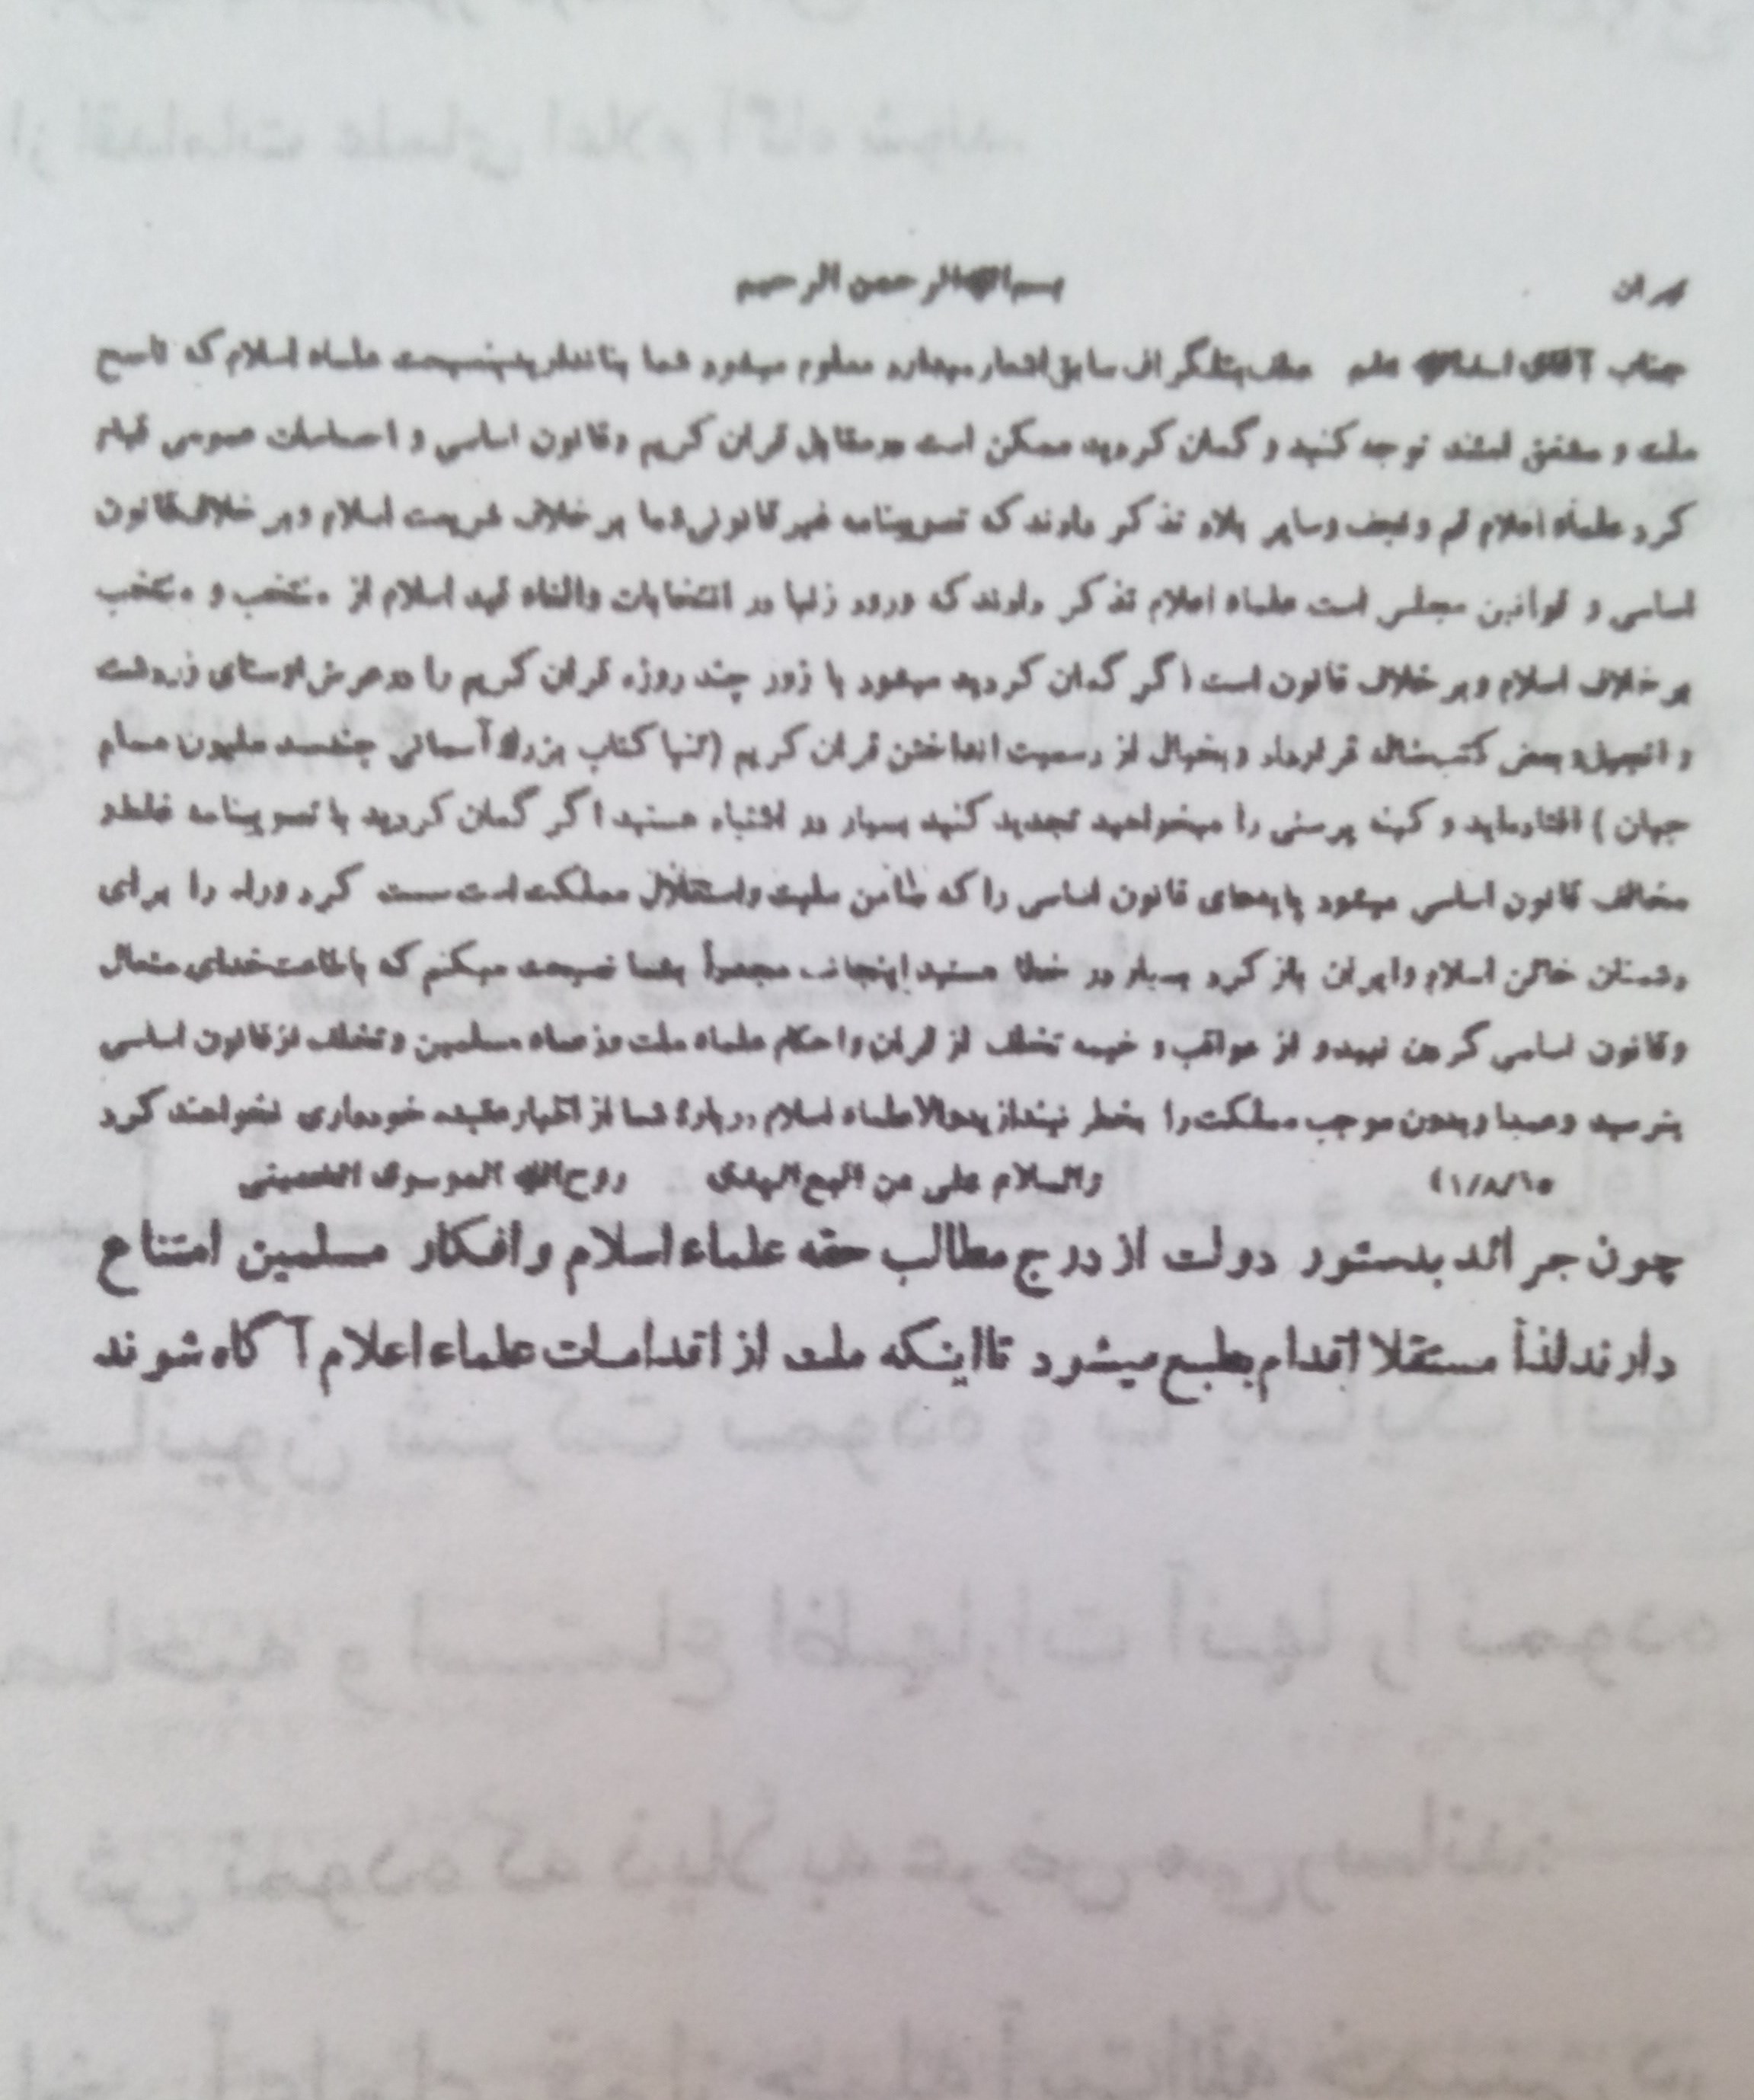 تهران بسم الله الرحمن الرحیم
جناب آقای اسدالله علم عطف بتلگراف سابق اشعار میدارد معلوم میشود شما بنا ندارید بنصیحت علماء اسلام که ناصح
ملت و مشفق امتند توجه کنید و گمان کردید ممکن است در مقابل قران کریم و قانون اساسی و احساسات عمومی قیام
کرد علماء اعلام قم و نجف و سایر بلاد تذکر دادند که تصویبنامه غیر قانونی شما بر خلاف شریعت اسلام و بر خلاف قانون
اساسی و قوانین مجلس است علماء اعلام تذکر دادند که ورود زنها در انتخابات والغاء قید اسلام از منتخب و منتخب
بر خلاف اسلام و بر خلاف قانون است اگر گمان کردید میشود با زور چند روزه قران کریم را در عرض اوستای زردشت
و انجیل و بعض کتب ضاله قرارداد و بخیال از رسمیت انداختن قران کریم (تنها کتاب بزرگ آسمانی چندصد ملیون مسلم
جهان) افتاده‌اید و کهنه پرستی را میخواهید تجدید کنید بسیار در اشتباه هستید اگر گمان کردید با تصویبنامه غلط و
مخالف قانون اساسی میشود پایه‌های قانون اساسی را که ضامن ملیت و استقلال مملکت است سست کرد و راه را برای
دشمنان خائن اسلام و ایران باز کرد بسیار در خطا هستید اینجانب مجدداً بشما نصیحت میکنم که باطاعت خدای متعال
و قانون اساسی گردن نهید و از عواقب وخیمه تخلف از قران و احکام علماء ملت و زعماء مسلمین و تخلف از قانون اساسی
بترسید و عمدا و بدون موجب مملکت را بخطر نیندازید والا علماء اسلام دربارهٔ شما از اظهار عقیده خودداری نخواهند کرد
۴۱/۸/۱۵ والسلام علی من اتبع الهدی روح الله الموسوی الخمینی
چون جرائد بدستور دولت از درج مطالب حقه علماء اسلام و افکار مسلمین امتناع
دارند لذا مستقلا اقدام بطبع میشود تا اینکه ملت از اقدامات علماء اعلام آگاه شوند